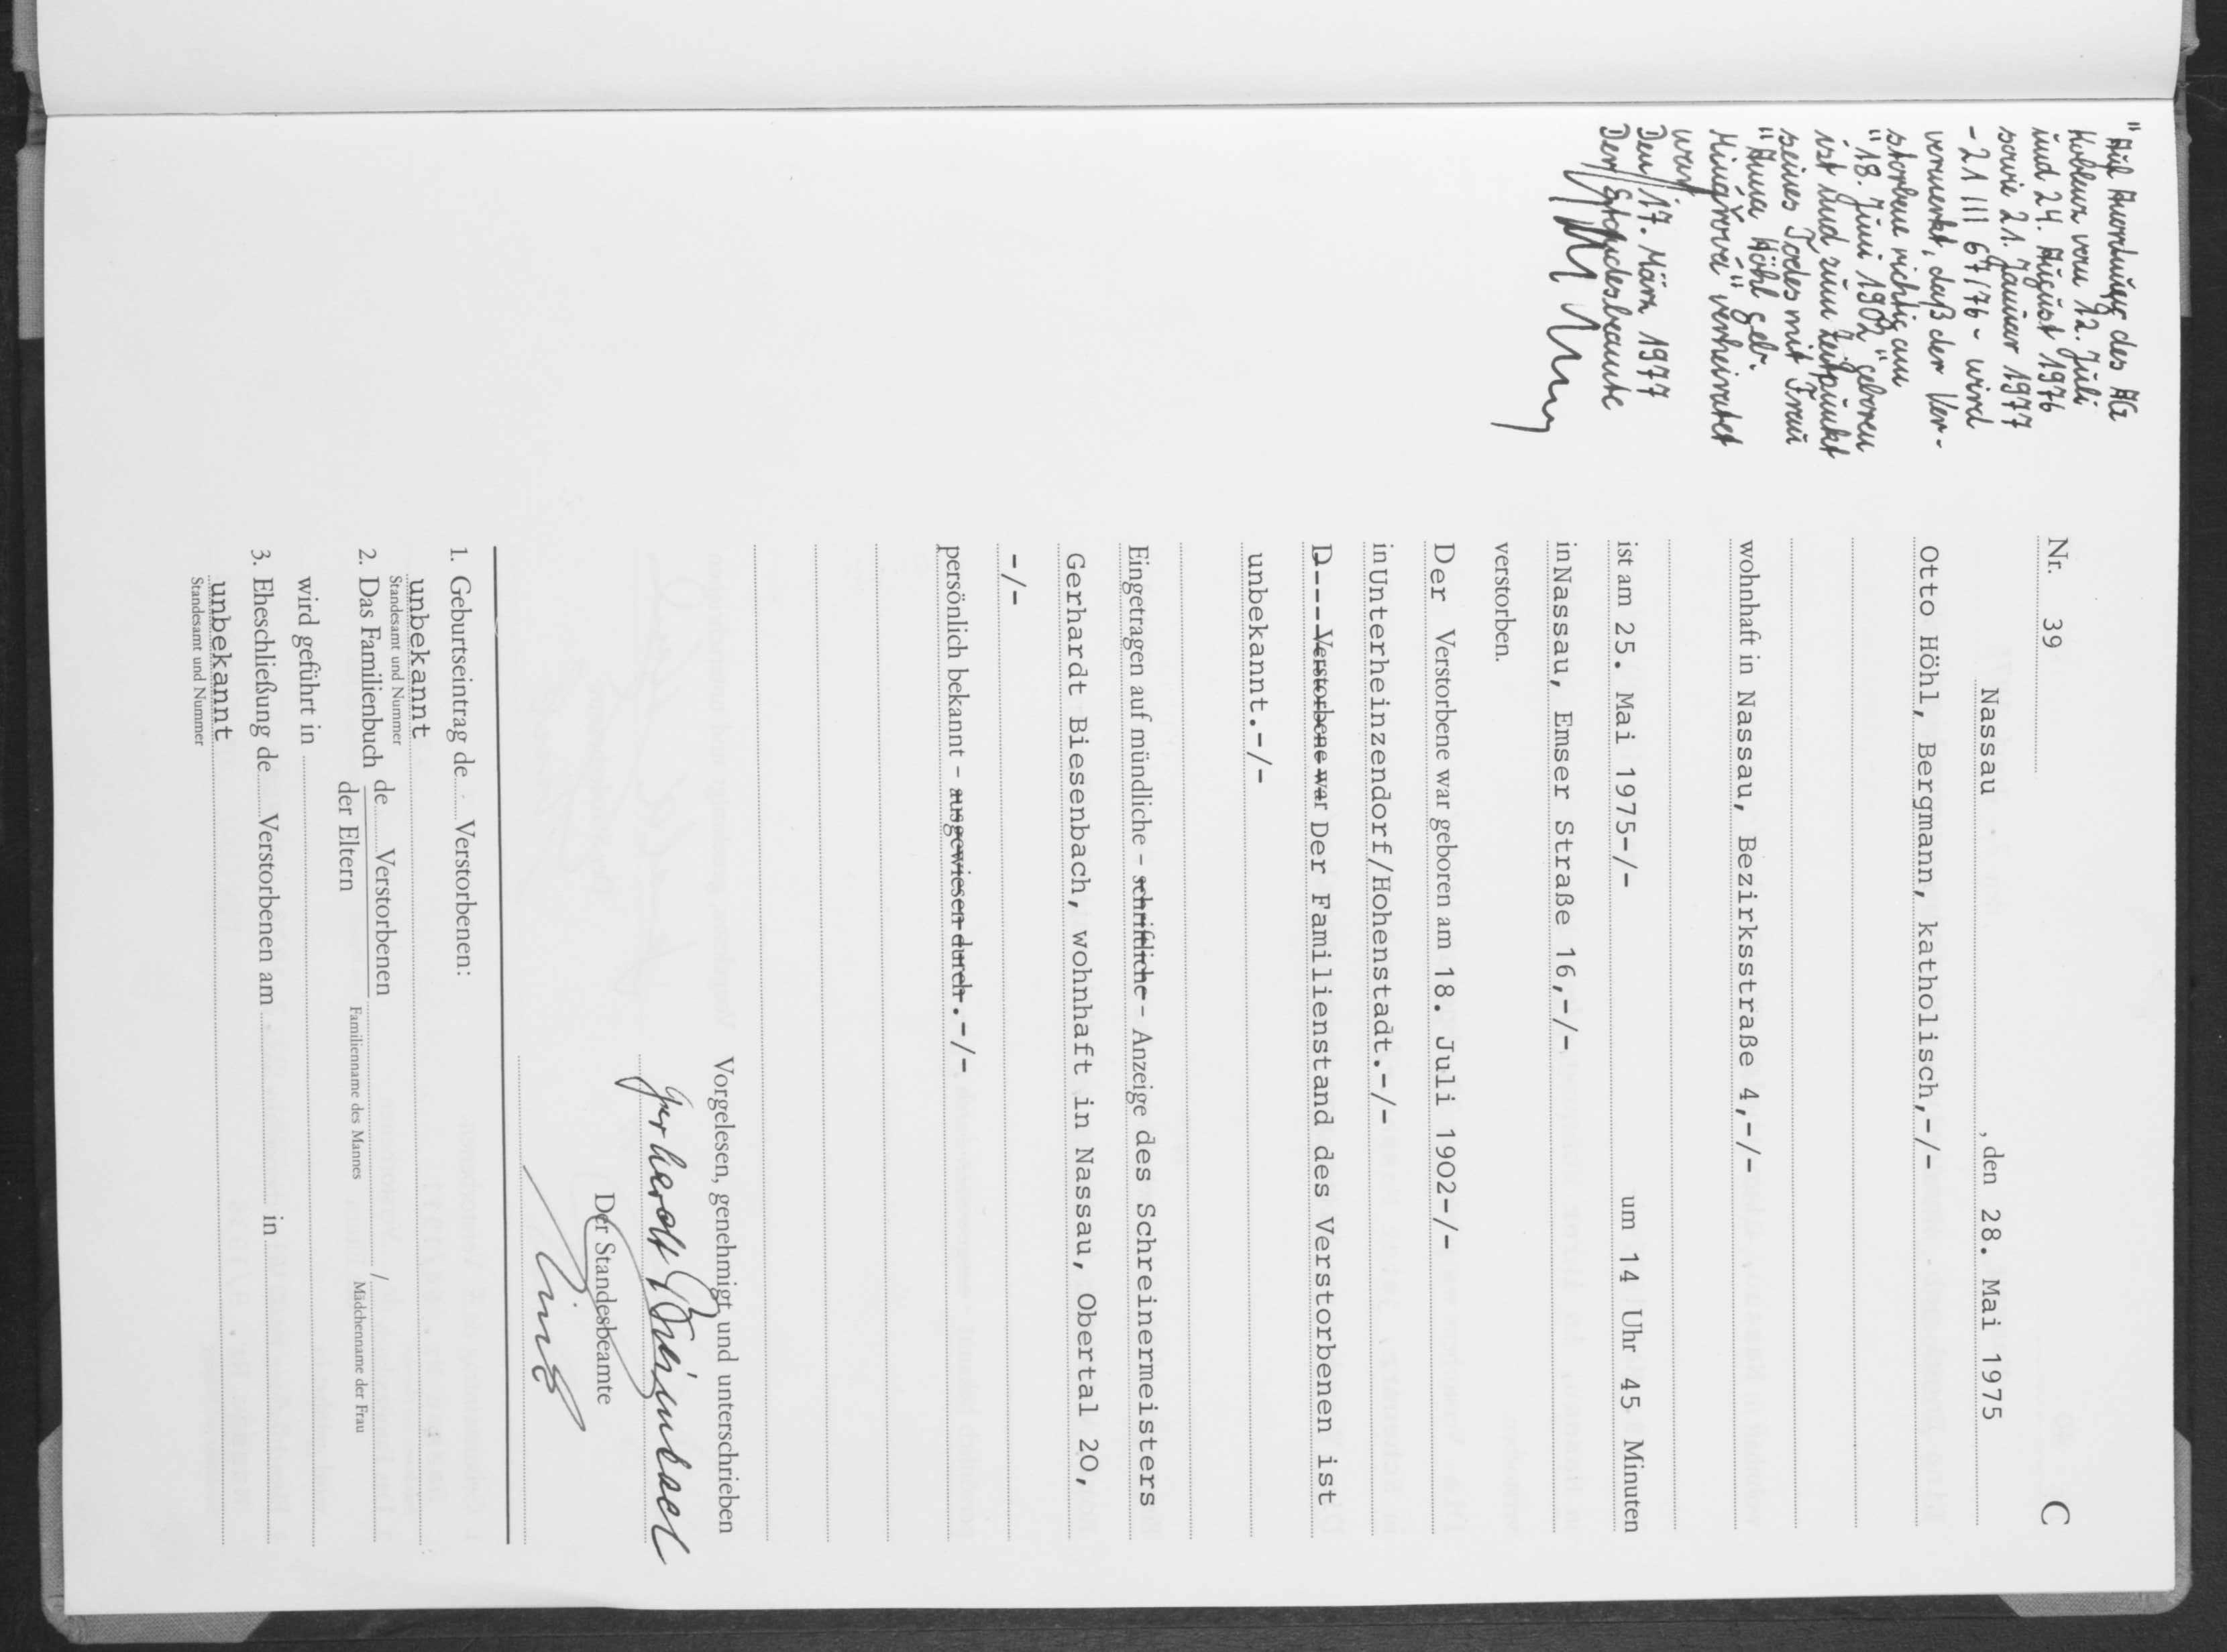 "Auf Anordnung des AG
Koblenz vom 12. Juli
und 24. August 1976
sowie 21. Januar 1977
- 21 III 67/76 - wird
vermerkt, daß der Ver-
storbene richtig am
"18. Juni 1902" geboren
ist und zum Zeitpunkt
seines Todes mit Frau
"Anna Höhl geb.
verheiratet
war."
Den 17. März 1977
Der Standesbeamte
Nr. 39
C
Nassau , den 28. Mai 1975
Otto Höhl, Bergmann, katholisch,-/-
wohnhaft in Nassau, Bezirksstraße 4,-/-
ist am 25. Mai 1975-/- um 14 Uhr 45 Minuten
in Nassau, Emser Straße 16,-/-
verstorben.
Der Verstorbene war geboren am 18. Juli 1902-/-
in Unterheinzendorf/Hohenstadt.-/-
D---- Verstorbene war Der Familienstand des Verstorbenen ist
unbekannt.-/-
Eingetragen auf mündliche - schriftliche - Anzeige des Schreinermeisters
Gerhardt Biesenbach, wohnhaft in Nassau, Obertal 20,
-/-
persönlich bekannt - ausgewiesen durch.-/-
Vorgelesen, genehmigt und unterschrieben
Gerhardt Biesenbach
Der Standesbeamte
1. Geburtseintrag de Verstorbenen:
unbekannt
Standesamt und Nummer
2. Das Familienbuch de Verstorbenen
der Eltern
Familienname des Mannes / Mädchenname der Frau
wird geführt in
3. Eheschließung de Verstorbenen am in
unbekannt
Standesamt und Nummer